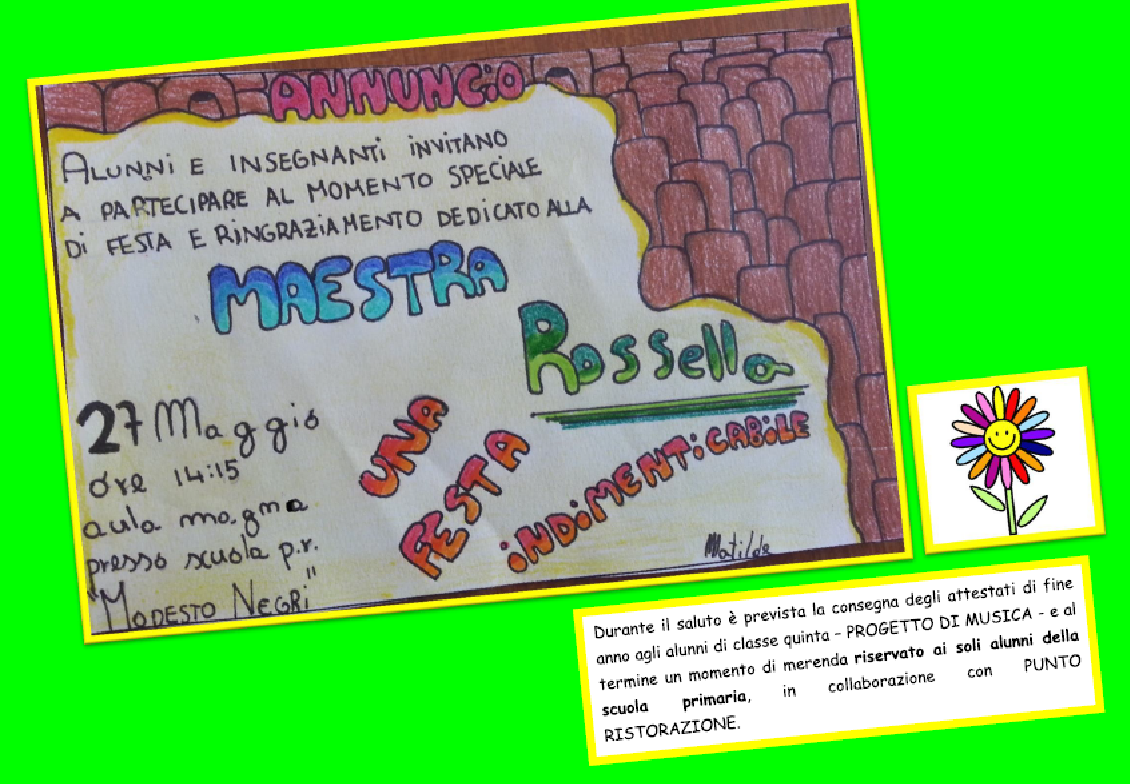 ANNUNCiO
ALUNNi E INSEGNANTi iNVITANO
A PARTECIPARE AL MOMENTO SPECIALE
Di FESTA E RiNGRAZiAMENTO DEDICATO ALLA
MAESTRA
Rossella
27 Maggio
ore 14:15
aula magna
presso scuola p.r.
"MODESTO NEGRI"
UNA
FESTA
iNDiMENTiCABiLE
Matilde
Durante il saluto è prevista la consegna degli attestati di fine
anno agli alunni di classe quinta - PROGETTO DI MUSICA - e al
termine un momento di merenda riservato ai soli alunni della
scuola primaria, in collaborazione con PUNTO
RISTORAZIONE.